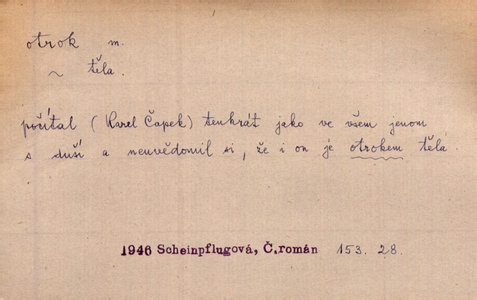 otrok m.
~ těla.
počítal (Karel Čapek) tenkrát jako ve všem jenom
s duší a neuvědomil si, že i on je otrokem těla
1946 Scheinpflugová, Č.román 153. 28.